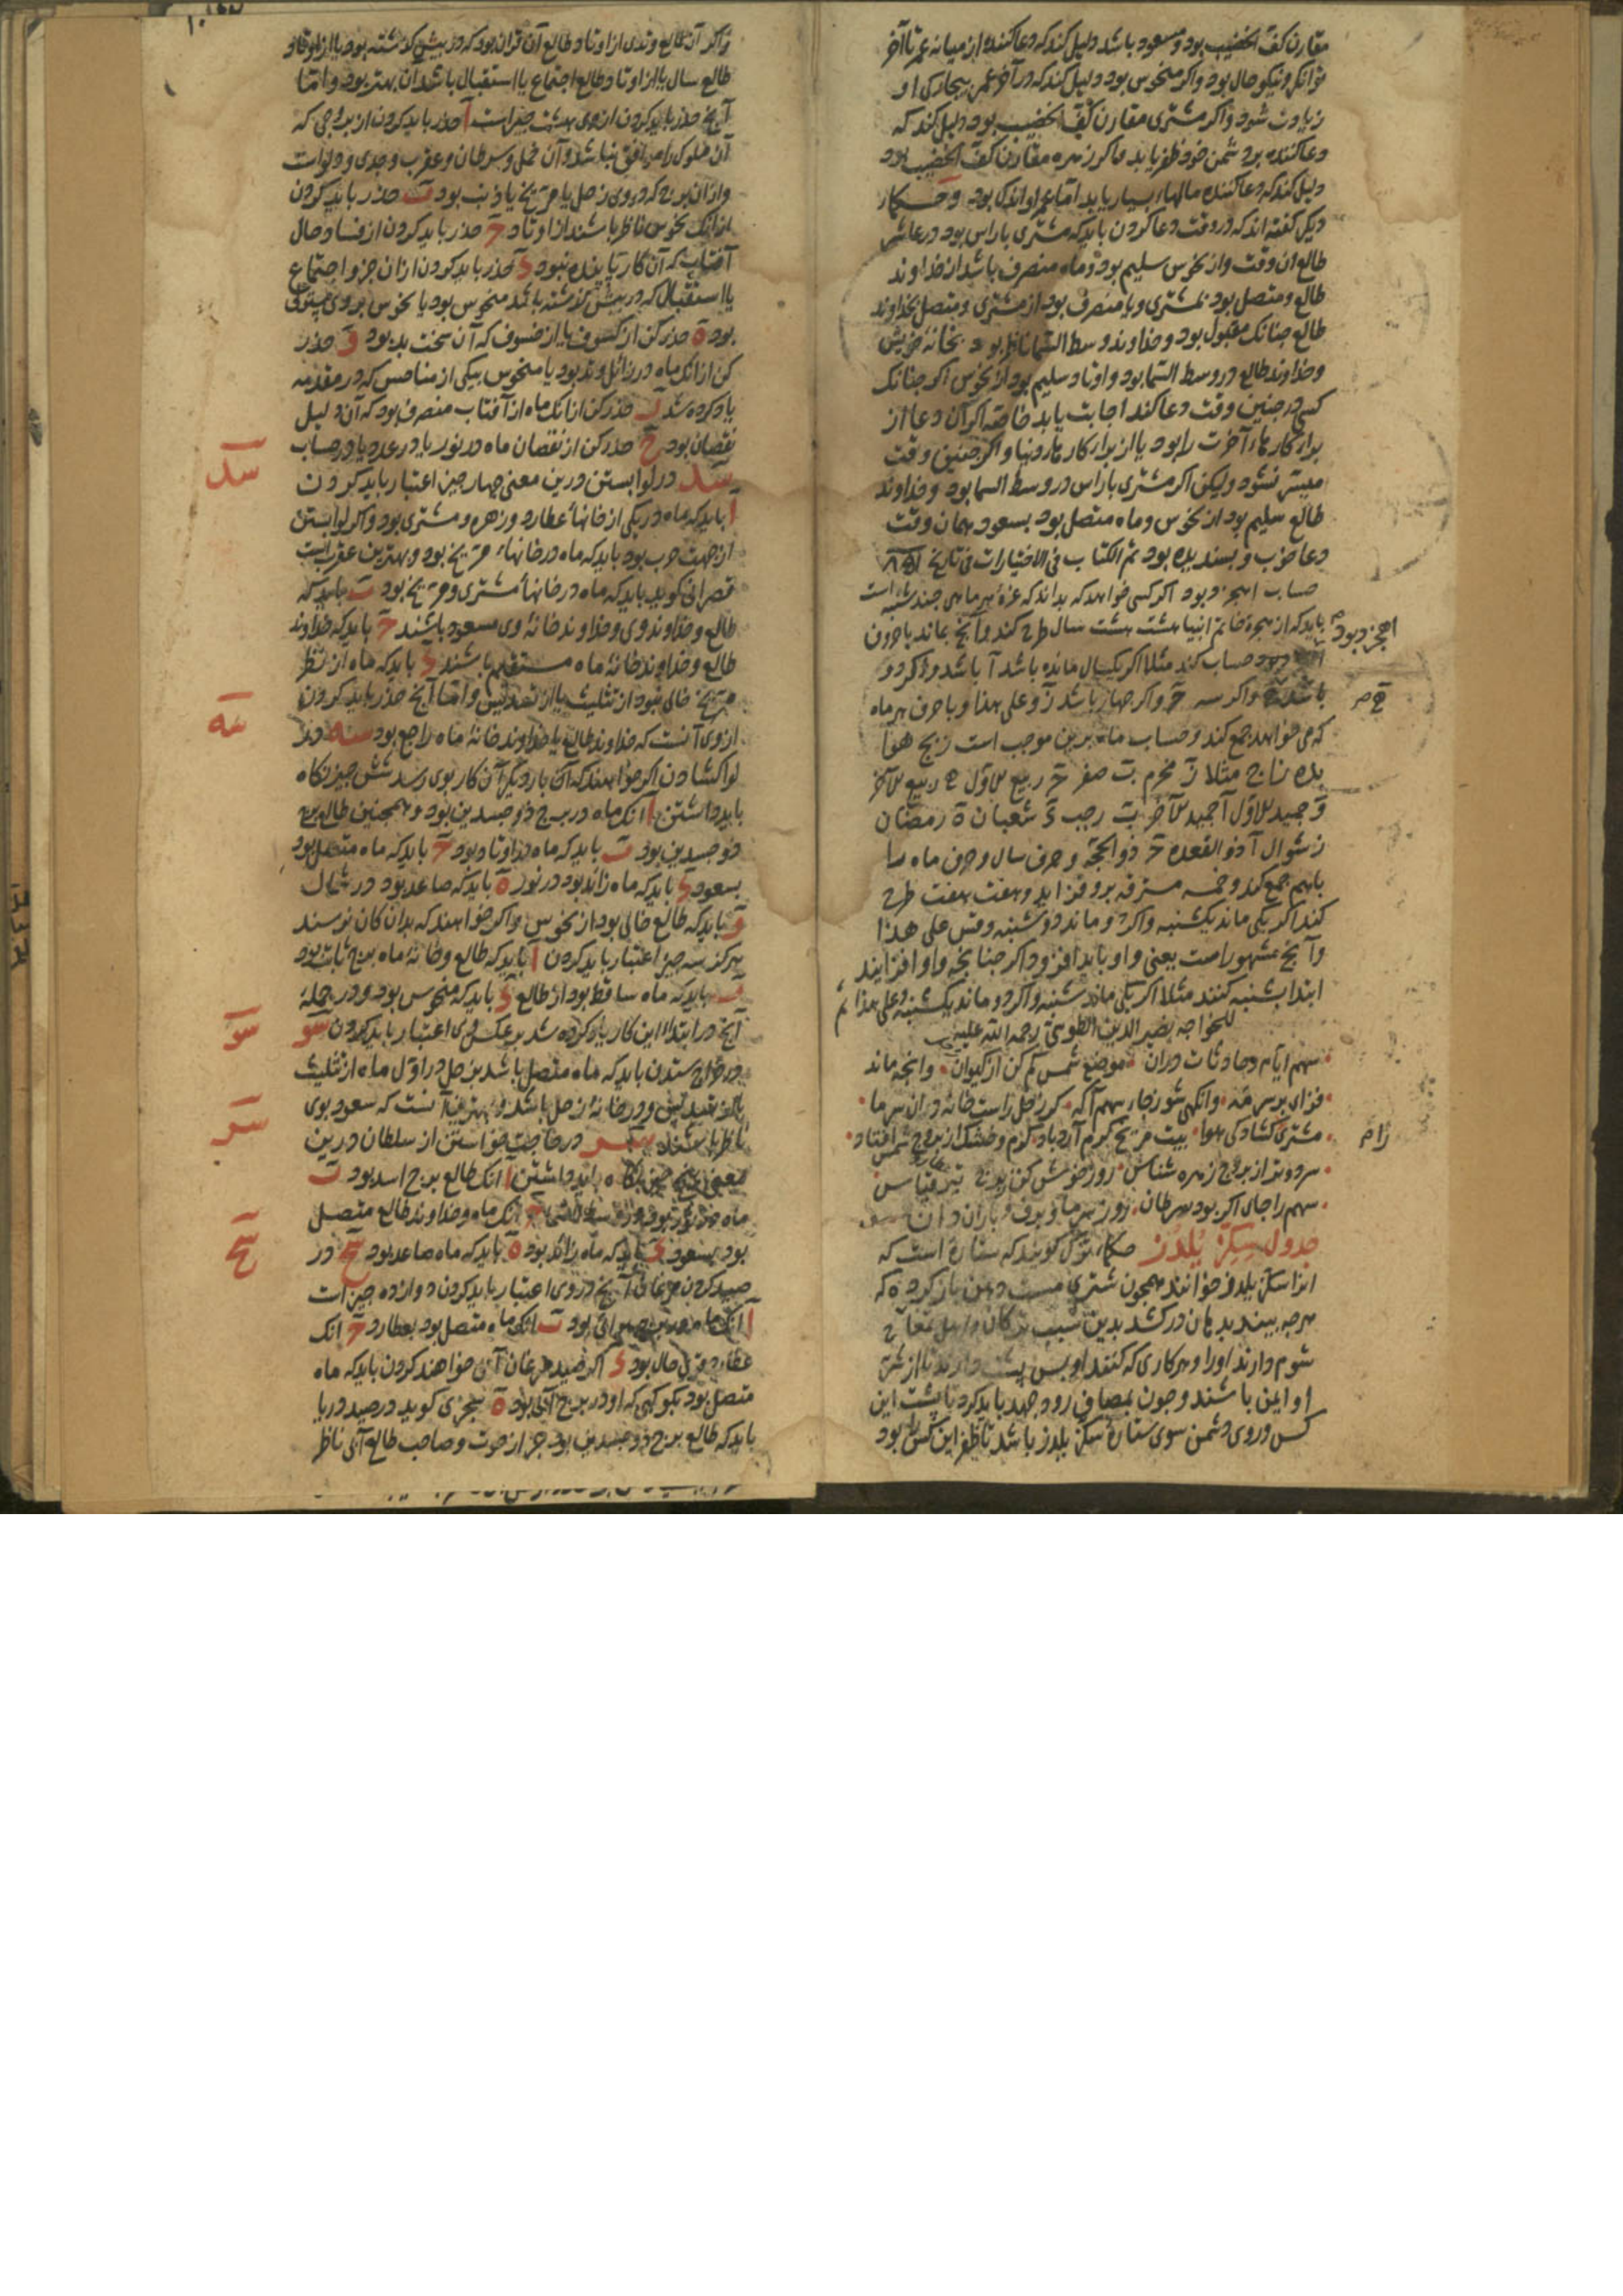 مقارن کف الخضیب بود و مسعود باشد دلیل کند که دعا کننده از میانه عمر تا آخر
توانگر و نیکو حال بود و اگر منحوس بود دلیل کند که در آخر عمر بیچارگی او
زیادت شود و اگر مشتری مقارن کف الخضیب بود دلیل کند که
دعا کننده بر دشمن خود ظفر یابد و اگر زهره مقارن کف الخضیب بود
دلیل کند که دعا کننده مالهاء بسیار یابد اما عمر او اندک بود و حکماء
دیگر گفته اند که در وقت دعا کردن باید که مشتری با راس بود در عاشر
طالع آن وقت و از نحوس سلیم بود و ماه منصرف باشد از خداوند
طالع و متصل بود بمشتری و یا منصرف بود از مشتری و متصل بخداوند
طالع چنانک مقبول بود و خداوند وسط السما ناظر بود بخانۀ خویش
و خداوند طالع در وسط السما بود و اوتاد سلیم بود از نحوس اگر چنانک
کسی در چنین وقت دعا کند اجابت یابد خاصه اگر آن دعا از
برای کارهاء آخرت را بود یا از برای کارهاء دنیا و اگر چنین وقت
میسر نشود ولیکن اگر مشتری با راس در وسط السما بود و خداوند
طالع سلیم بود از نحوس و ماه متصل بود بسعود همان وقت
دعا خوب و پسندیده بود تم الکتاب فی الاختیارات فی تاریخ
حساب اهجز دبود اگر کسی خواهد که بداند که غرۀ هر ماهی چند شنبه است
باید که از هجرة خاتم انبیا هشت هشت سال طرح کند و آنچ بماند با حرف
اهجز دبود حساب کند مثلا اگر یکسال مانده باشد آ باشد و اگر دو
باشد ه و اگر سه ج و اگر چهار باشد ز و علی هذا و با حرف هر ماه
که می خواهد جمع کند و حساب ماه برین موجب است زبج هوا
بده زاج مثلا ز محرم ب صفر ج ربیع الاول ه ربیع الآخر
و جمید الاول آ جمید الآخر ب رجب د شعبان ه رمضان
ز شوال آ ذو القعده ج ذو الحجه و حرف سال و حرف ماه را
باهم جمع کند و خمسه مسترقه برو فزاید و هفت هفت طرح
کند اگر یکی ماند یکشنبه و اگر دو ماند دوشنبه و قس علی هذا
و آنچ مشهور است یعنی واو باید افزود اگر چنانچه واو افزایند
ابتدا بشنبه کنند مثلا اگر یکی ماند شنبه و اگر دو ماند یکشنبه و علی هذا تم
للخواجه نصیر الدین الطوسی رحمه الله علیه
سهم ایام و حادثات دران موضع شمس کم کن از کیوان وانچه ماند
فزای بر سر مه وانگهی شو زجاء سهم آگه گر زحل راست خانه دران سرما
مشتری گشادگی هوا بیت مریخ گرم آرد باد گرم و خشک از بروج شمس افتاد
سرد و تر از بروج زهره شناس روز خوش کن ز برج تیر قیاس
سهم را جای اگر بود سرطان روز سرما و برف و باران دان
جدول سکز یلدز حکماء ترک گویند که ستاره است که
انرا سکز یلدوز خوانند همچون شتری مست دهن باز کرده که
هرچه بیند بدهان درکشد بدین سبب ترکان و اهل
شوم دارند اورا و هر کاری که کنند او پس پشت دارند تا از شر
او ایمن باشند و چون بمصاف رود جهد باید کرد تا پشت این
کس و روی دشمن سوی ستارۀ سکز یلدز باشد تا ظفر این کس را بود
اهجز دبود
زام
و اگر آن طالع وتدی از اوتاد طالع آن قران بود که در پیش گذشته بود یا از اوتاد
طالع سال یا از اوتاد طالع اجتماع یا استقبال باشد آن بهتر بود و اما
آنچ حذر باید کردن ازوی هشت چیز است آ حذر باید کردن از بروجی که
آن ملوک را موافق نباشد و آن حمل و سرطان و عقرب و جدی و دلو است
و ازان برج که دروی زحل یا مریخ یا ذنب بود ب حذر باید کردن
از انک نحوس ناظر باشند از اوتاد ج حذر باید کردن از فساد حال
آفتاب که آن کار پاینده نبود د حذر باید کردن ازان جزو اجتماع
یا استقبال که در پیش گذشته باشد منحوس بود یا نحوس بروی مستولی
بود ه حذر کن از کسوف یا از خسوف که آن سخت بد بود و حذر
کن از انک ماه در زائل وتد بود یا منحوس بیکی از مناحس که در مقدمه
یاد کرده شد ز حذر کن از انک ماه از آفتاب منصرف بود که آن دلیل
نقصان بود ح حذر کن از نقصان ماه در نور یا در عدد یا در حساب
سد در لوا بستن درین معنی چهار چیز اعتبار باید کردن
آ باید که ماه در یکی از خانهاء عطارد و زهره و مشتری بود و اگر لوا بستن
از جهت حرب بود باید که ماه در خانهاء مریخ بود و بهترین عقربست
قصرانی گوید باید که ماه در خانهاء مشتری و مریخ بود ب باید که
طالع و خداوند وی و خداوند خانۀ وی مسعود باشند ج باید که خداوند
طالع و خداوند خانۀ ماه مستقیم باشند د باید که ماه از نظر
مریخ خالی نبود از تثلیث یا از تسدیس و اما آنچ حذر باید کردن
ازوی آنست که خداوند طالع یا خداوند خانۀ ماه راجع بود سه در
لوا گشادن اگر خواهند که آن بار دیگر آن کار بوی رسد شش چیز نگاه
باید داشتن آ انک ماه در برج ذو جسدین بود و همچنین طالع برج
ذو جسدین بود ب باید که ماه در اوتاد بود ج باید که ماه متصل بود
بسعود د باید که ماه زائد بود در نور ه باید که صاعد بود در شمال
و باید که طالع خالی بود از نحوس و اگر خواهند که بدان کان نرسند
هرگز سه چیز اعتبار باید کردن آ باید که طالع و خانۀ ماه برج ثابت بود
ب باید که ماه ساقط بود از طالع د باید که منحوس بود و در جمله
آنچ در ابتداء این کار یاد کرده شد بر عکس وی اعتبار باید کردن سو
در خراج ستدن باید که ماه متصل باشد بزحل در اول ماه از تثلیث
یا از تسدیس و در خانۀ زحل باشد و بهترین آنست که سعود بوی
ناظر باشند سز در حاجت خواستن از سلطان درین
معنی پنج چیز نگاه باید داشتن آ انک طالع برج اسد بود ب
ماه در وتد بود در وسط السما ج انک ماه و خداوند طالع متصل
بود بسعود د باید که ماه زائد بود ه باید که ماه صاعد بود سح در
صید کردن مرغان آنچ دروی اعتبار باید کردن دوازده چیز است
آ انک ماه در برج هوائی بود ب انک ماه متصل بود بعطارد ج انک
عطارد قوی حال بود د اگر صید مرغان آبی خواهند کردن باید که ماه
متصل بود بکوکبی که او در برج آبی بود ه سجزی گوید در صید دریا
باید که طالع برج ذو جسدین بود جز از حوت و صاحب طالع آبی ناظر
سد
سه
سو
سز
سح